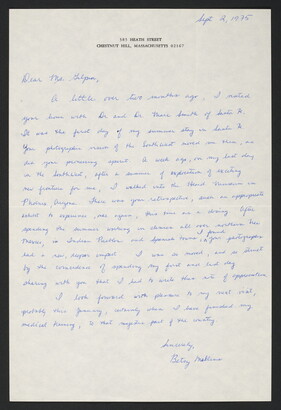 Sept 2, 1975
593 HEATH STREET
CHESTNUT HILL, MASSACHUSETTS 02167
Dear Mr. Gilpin,
A little over two months ago, I visited
your home with Dr. and Dr. Marc Smith of Santa Fe.
It was the first day of my summer stay in Santa Fe.
Your photographic views of the Southwest moved me then, as
did your pioneering spirit. A week ago, on my last day
in the Southwest, after a summer of exploration of exciting
new frontiers for me, I walked into the Heard Museum in
Phoenix, Arizona. There was your retrospective, such an appropriate
exhibit to experience, once again, this time as a
spending the summer working in clinics all over northern New
Mexico, in Indian Pueblos and Spanish towns, I found your photographs
had a new, deeper impact. I was so moved, and so struck
by the coincidence of spending my first and last day
sharing with you that I had to write this note of appreciation.
I look forward with pleasure to my next visit,
probably this January, certainly when I have finished my
medical training, to that magical part of the country.
Sincerely,
Betsy